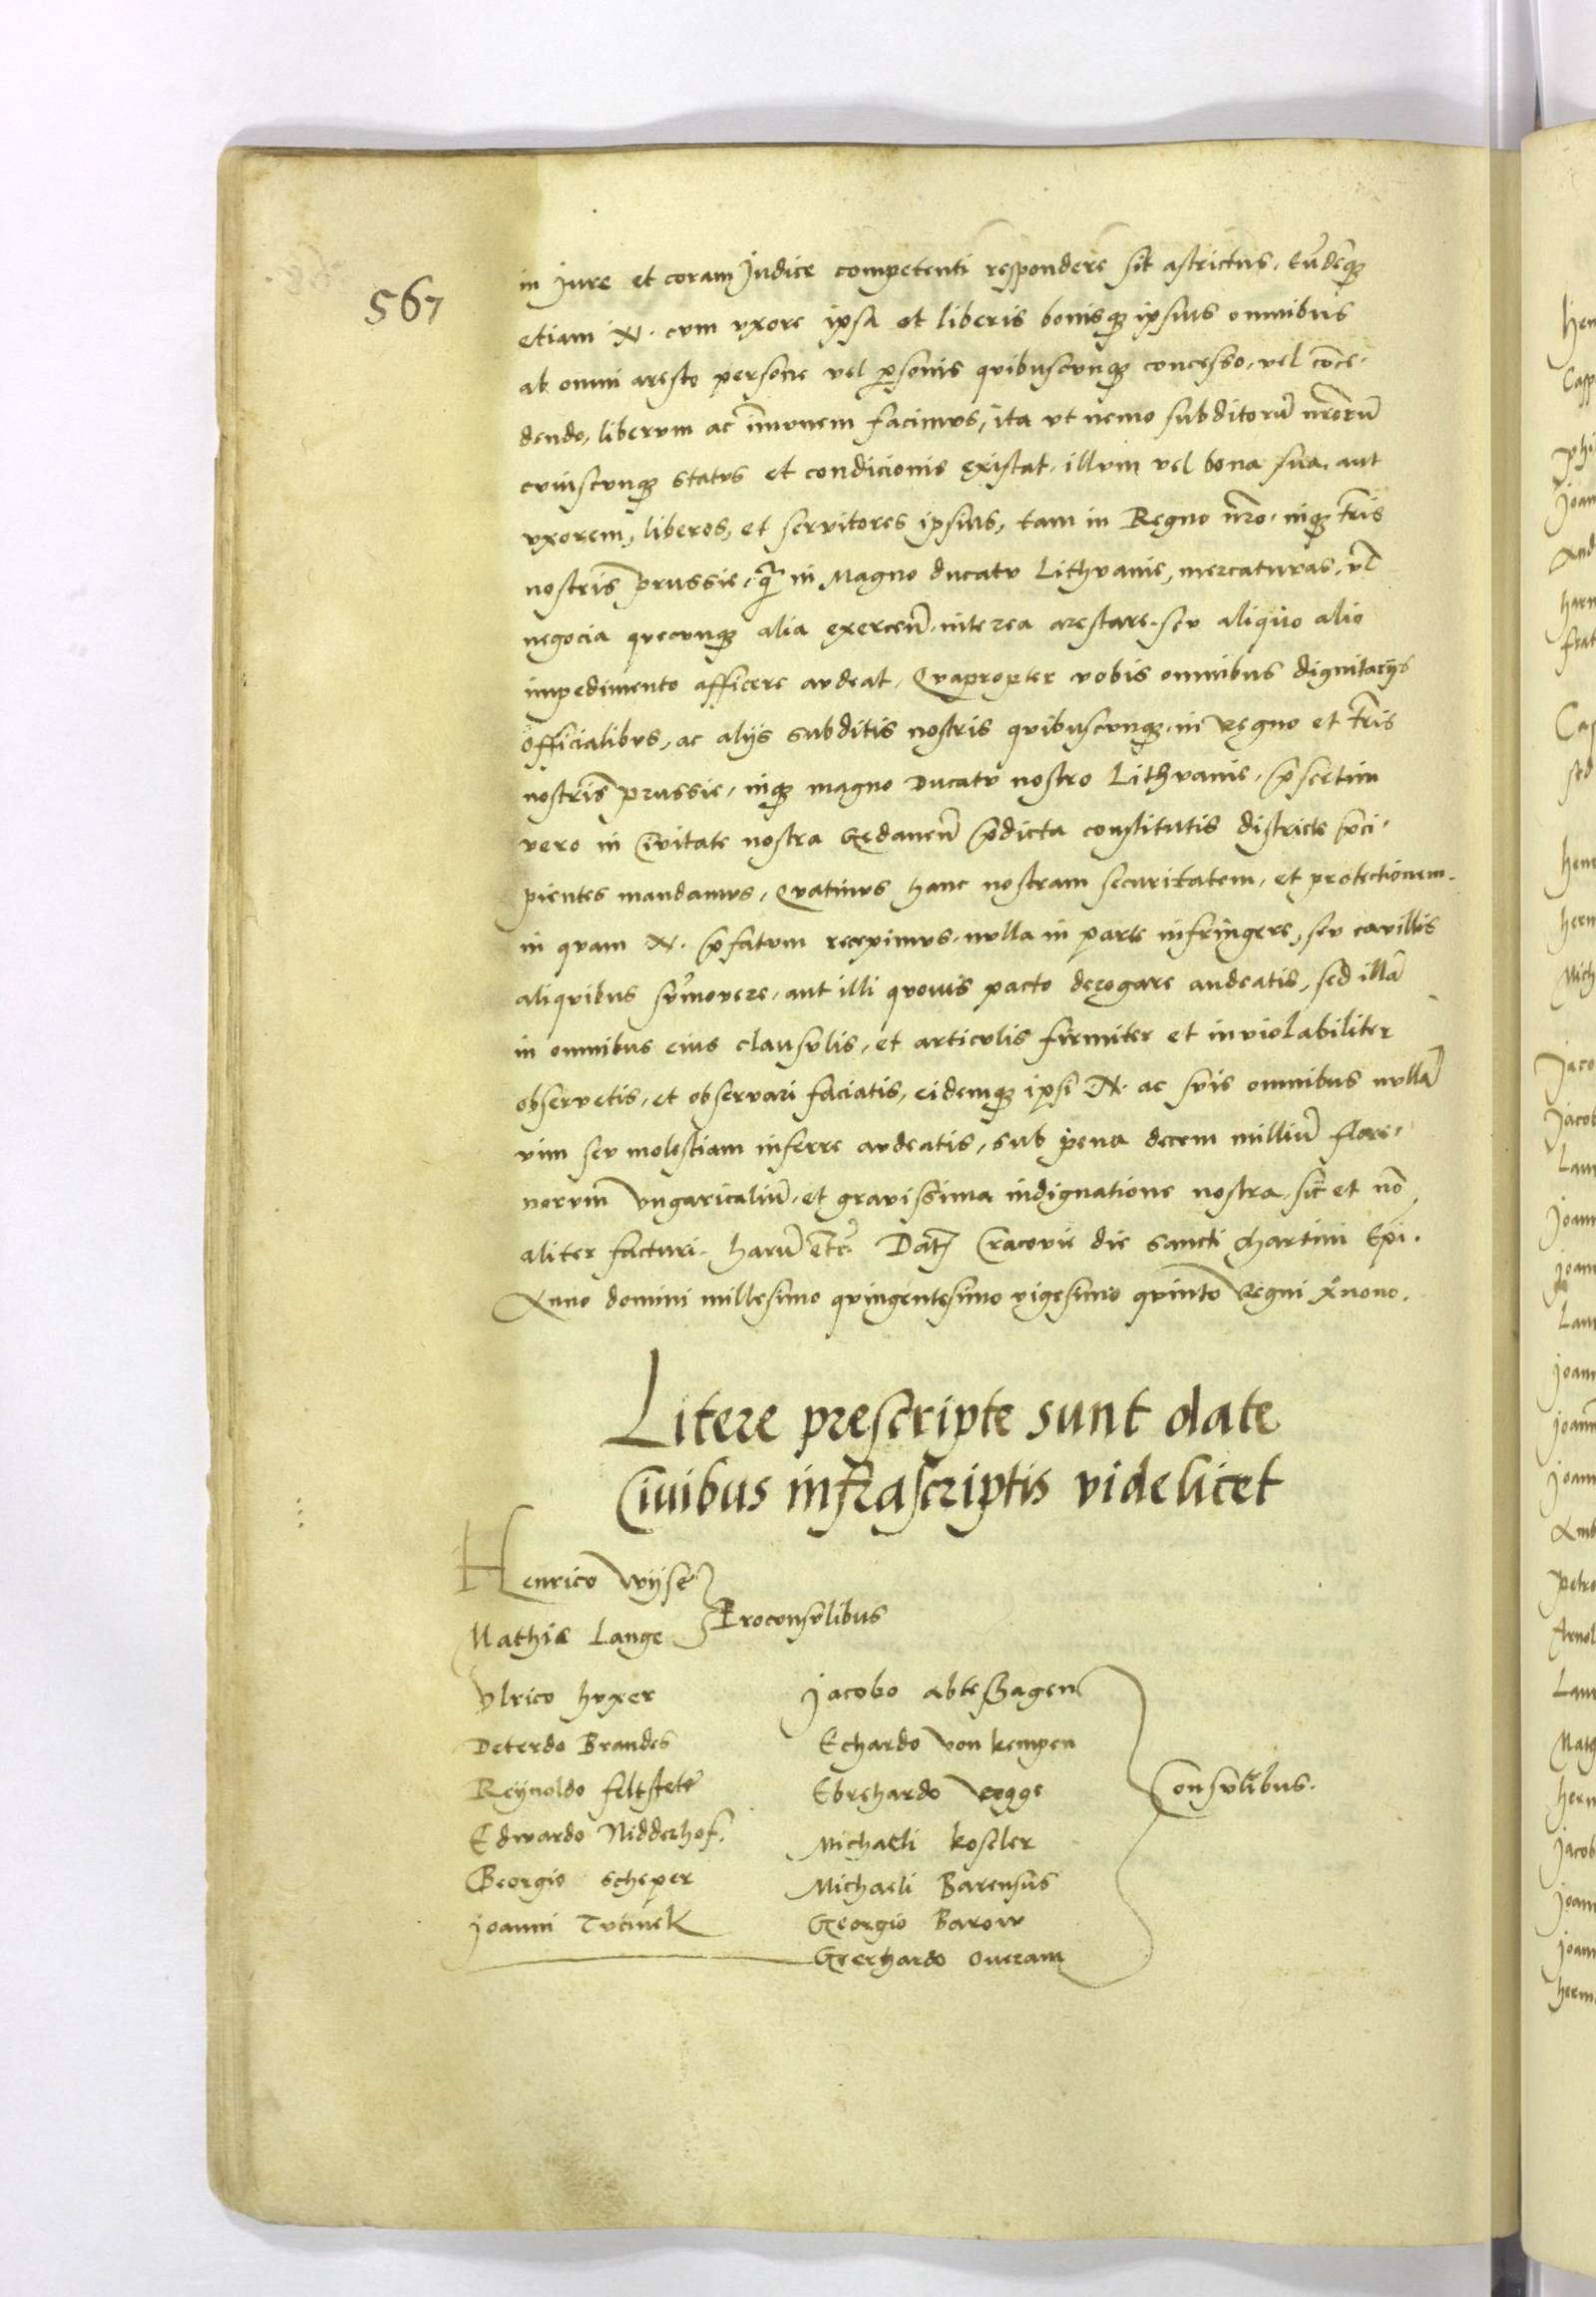 567
in Jure et coram Judice competenti respondere sit astrictus. Eũdẽqꝫ
etiam N. cum uxore ipsa et liberis bonisqꝫ ipsius omnibus
ab omni aresto persone vel ꝑsonis quibuscunqꝫ concesso, vel cõce-
dendo, liberum ac ĩmunem facimus, ita ut nemo subditorũ nr̃orũ
cuiuscunqꝫ status et condicionis existat, illum vel bona sua, aut
uxorem, liberos, et servitores ipsius, tam in Regno nr̃o, inqꝫ tr̃is
nostris prussie, q̃ in Magno ducatu Lithuanie, mercaturas, vł
negocia quecunqꝫ alia exerceñ. interea arestare. seu aliquo alio
impedimento afficere audeat. Quapropter vobis omnibus dignitarijs
officialibus, ac alijs subditis nostris quibuscunqꝫ. in Regno et tr̃is
nostris prussie, inqꝫ magno Ducatu nostro Lithuanie, p̃sertim
vero in Civitate nostra Gedaneñ p̃dicta constitutis districte p̃ci-
pientes mandamus, Quatinus hanc nostram securitatem, et protectionem.
in quam N. p̃fatum recepimus. nulla in parte infringere, seu cavillis
aliquibus sũmovere, aut illi quovis pacto derogare audeatis, sed illã
in omnibus eius clausulis, et articulis firmiter et inviolabiliter
observetis, et observari faciatis, eidemqꝫ ipsi N. ac suis omnibus nullã
vim seu molestiam inferre audeatis, sub pena decem milliũ flore-
norum Ungaricaliũ, et gravissima indignatione nostra, sic et nõ
aliter facturi. harũ etc̃. Dat̃ Cracovie die sancti Martini Epi.
Anno domini millesimo quingentesimo vigesimo quinto Regni xꝰnono.
Litere prescripte sunt date
Civibus infrascriptis videlicet
Henrico Wijse
Mathie Lange
Proconsulibus
Ulrico huxer
Deterdo Brandes
Reynoldo feltstete
Edwardo Nidderhof.
Georgio scheper
Joanni Tutinek
Jacobo abteshagen
Echardo von kempen
Ebrehardo Rogge
Michaeli kosler
Michaeli Barensus
Georgio Barow
Gerhardo Overam
Consulibus.